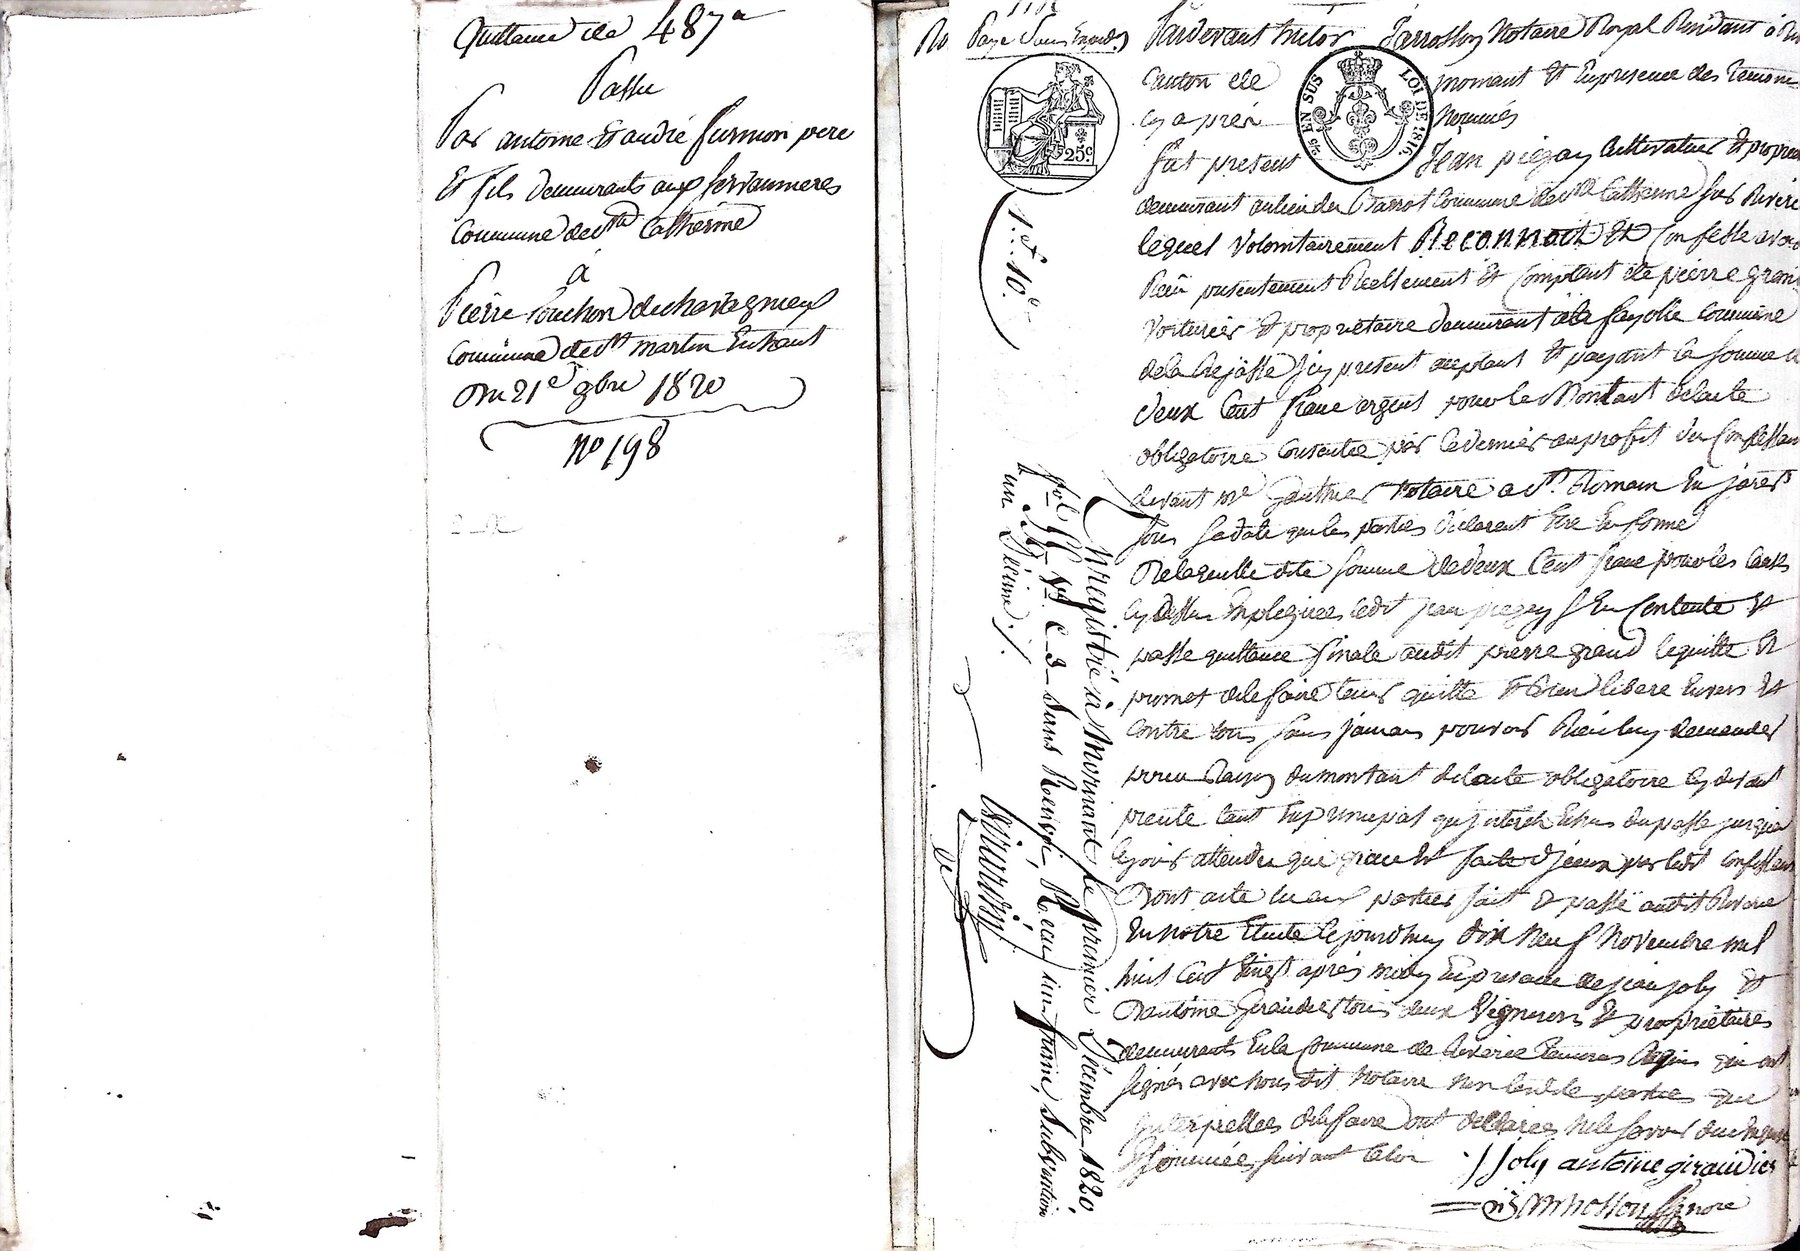 Quittance de 487 a
Passée
Par antoine & andré furnion pere
Et fils demeurants aux
Commune de Ste Catherine
a
Pierre Pouchon de chavagnieux
Commune de St martin Enhaut
Du 21e 9bre 1820
no 198
Pardevant Notaire Royal Résidant à
Canton de mornant & En presence des temoins
Cy après Nommés
25c
25 EN SUS LOI DE 1816.
fut present Jean piegay Cultivateur & propriet
demeurant au lieu du Commune de Ste Catherine sur Riverie
lequel Volontairement Reconnoit & Confesse avoir
Reçu presentement Reellement & Comptant de pierre grand
Voiturier & proprietaire demeurant à la fayolle Commune
de la Rajasse Icy present acceptant & payant la Somme de
deux Cent franc argent pour le Montant de l'acte
obligatoire Consentie par ce dernier au profit du Confessant
devant me gauthier Notaire a St Romain En jarest
sous sa date que les parties declarent Etre En forme
De laquelle dite somme de deux Cent franc pour les Causes
Cy dessus Expliquées ledit jean piegay s'En Contente &
passe quittance finale audit pierre grand le quitte &
promet de le faire tenir quitte & bien libere Envers &
Contre tous sans jamais pouvoir Rien luy demander
pour Raison du montant de l'acte obligatoire Cy devant
tant En principal qu'interets Echus du passé jusqu'à
ce jour attendu que grace Est faite d'Iceux par ledit Confessant
Dont acte lu aux parties fait & passé audit Riverie
En notre Etude le jourdhuy dix Neuf Novembre mil
huit Cent Vingt après midy En presence de jean joly &
D'antoine Giraudier tous deux Vignerons & proprietaires
demeurants En la Commune de Riverie temoins Requis qui ont
signés avec nous dit Notaire non les dites parties que
Interpellées de le faire ont declarées ne le savoir de ce Enquises
& sommées suivant la loi
J Joly antoine giraudier
1.f 10.c
Enregistré à Mornant le premier Décembre 1820
fol. 55 Vo. C. 3 Sans Renvoi, Reçu un franc, Subvention
un Décime ./.